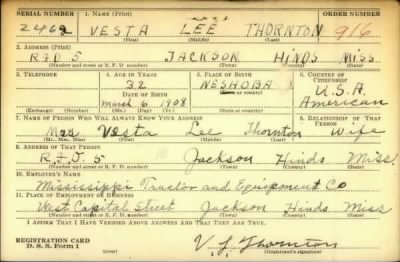 SERIAL NUMBER 1. NAME (Print) ORDER NUMBER
2462 VESTA LEE THORNTON 916
(First) (Middle) (Last)
2. ADDRESS (Print)
RFD 5 JACKSON HINDS MISS
(Number and street or R. F. D. number) (Town) (County) (State)
3. TELEPHONE 4. AGE IN YEARS 5. PLACE OF BIRTH 6. COUNTRY OF CITIZENSHIP
32 NESHOBA U.S.A.
DATE OF BIRTH (Town or county)
March 6 1908 American
(Exchange) (Number) (Mo.) (Day) (Yr.) (State or country)
7. NAME OF PERSON WHO WILL ALWAYS KNOW YOUR ADDRESS 8. RELATIONSHIP OF THAT PERSON
Mrs Vesta Lee Thornton Wife
(Mr., Mrs., Miss) (First) (Middle) (Last)
9. ADDRESS OF THAT PERSON
R.F.D. 5 Jackson Hinds Miss.
(Number and street or R. F. D. number) (Town) (County) (State)
10. EMPLOYER'S NAME
Mississippi Tractor and Equipment Co
11. PLACE OF EMPLOYMENT OR BUSINESS
West Capital Street Jackson Hinds Miss
(Number and street or R. F. D. number) (Town) (County) (State)
I AFFIRM THAT I HAVE VERIFIED ABOVE ANSWERS AND THAT THEY ARE TRUE.
REGISTRATION CARD
D. S. S. Form 1 V. L. Thornton
(Registrant's signature)